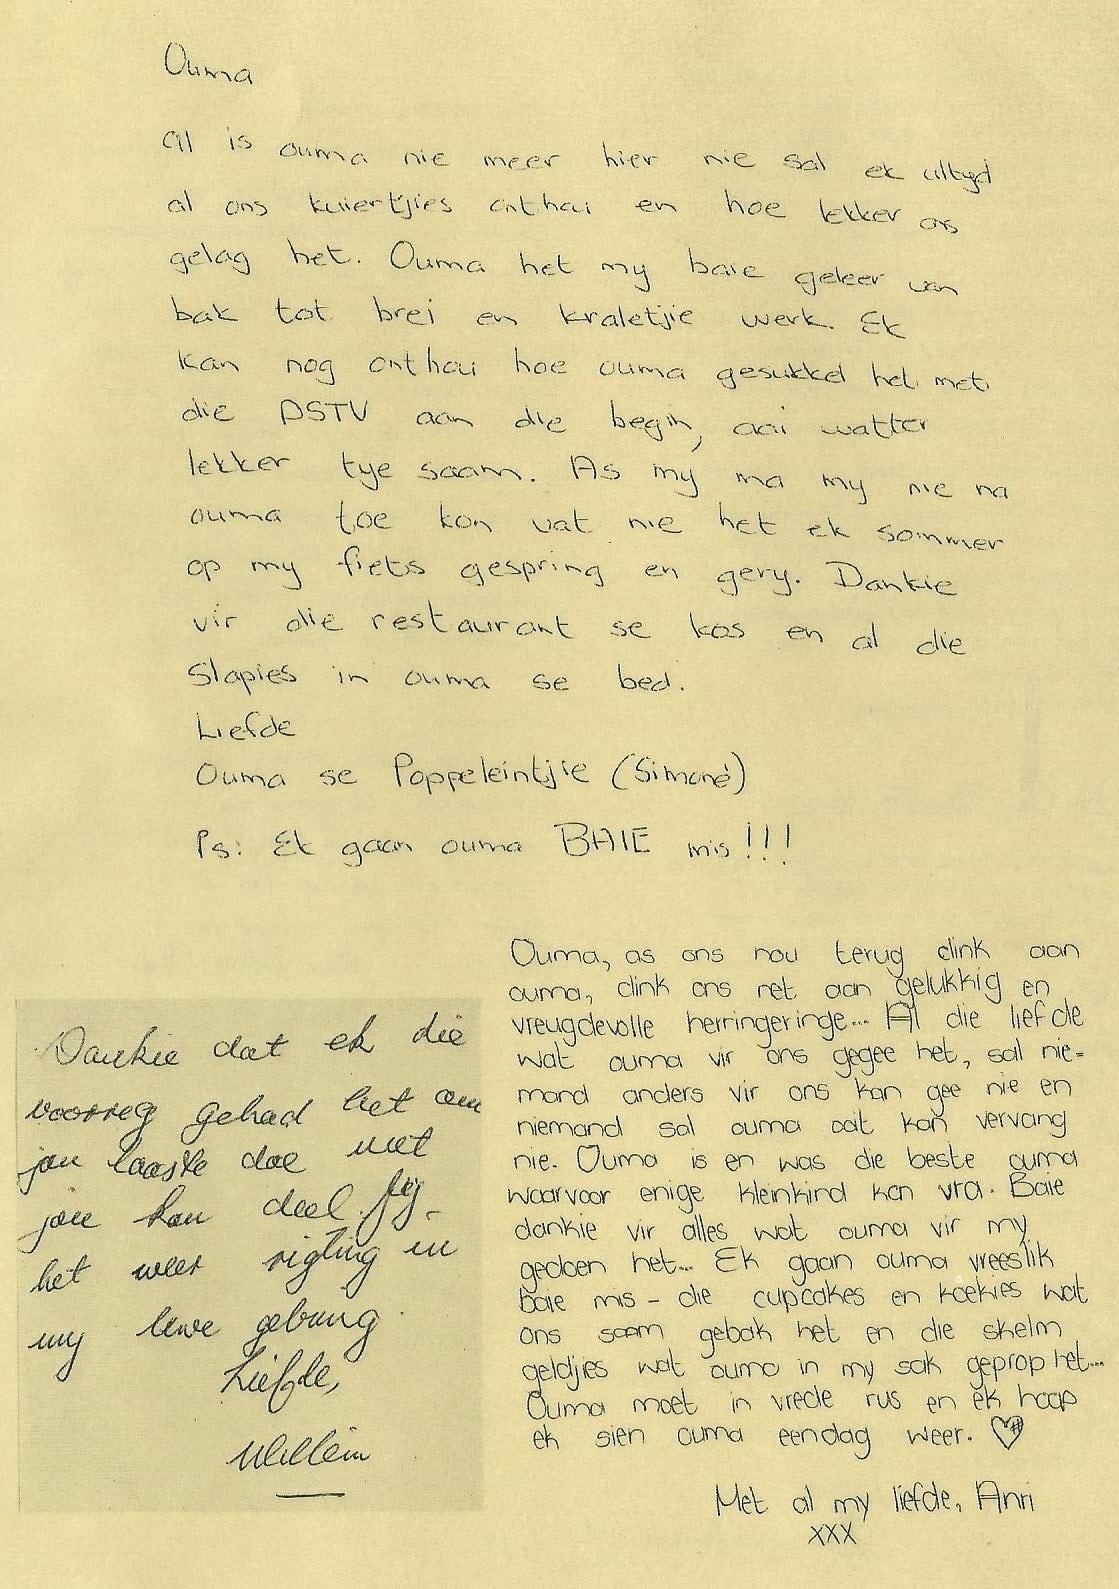 Ouma
Al is ouma nie meer hier nie sal ek altyd
al ons kuiertjies onthou en hoe lekker ons
gelag het. Ouma het my baie geleer van
bak tot brei en kraletjie werk. Ek
kan nog onthou hoe ouma gesukkel het met
die DSTV aan die begin, aai watter
lekker tye saam. As my ma my nie na
ouma toe kon vat nie het ek sommer
op my fiets gespring en gery. Dankie
vir die restaurant se kos en al die
slapies in ouma se bed.
Liefde
Ouma se Poppeleintjie (Simoné)
Ps: Ek gaan ouma BAIE mis!!!
Dankie dat ek die
voorreg gehad het om
jou laaste dae met
jou kon deel. Jy
het weer rigting in
my lewe gebring.
Liefde,
Willem
Ouma, as ons nou terug dink aan
ouma, dink ons net aan gelukkig en
vreugdevolle herringeringe... Al die liefde
wat ouma vir ons gegee het, sal nie-
mand anders vir ons kan gee nie en
niemand sal ouma ooit kan vervang
nie. Ouma is en was die beste ouma
waarvoor enige kleinkind kan vra. Baie
dankie vir alles wat ouma vir my
gedoen het... Ek gaan ouma vreeslik
baie mis - die cupcakes en koekies wat
ons saam gebak het en die skelm
geldjies wat ouma in my sak geprop het...
Ouma moet in vrede rus en ek hoop
ek sien ouma eendag weer.
Met al my liefde, Anri
XXX